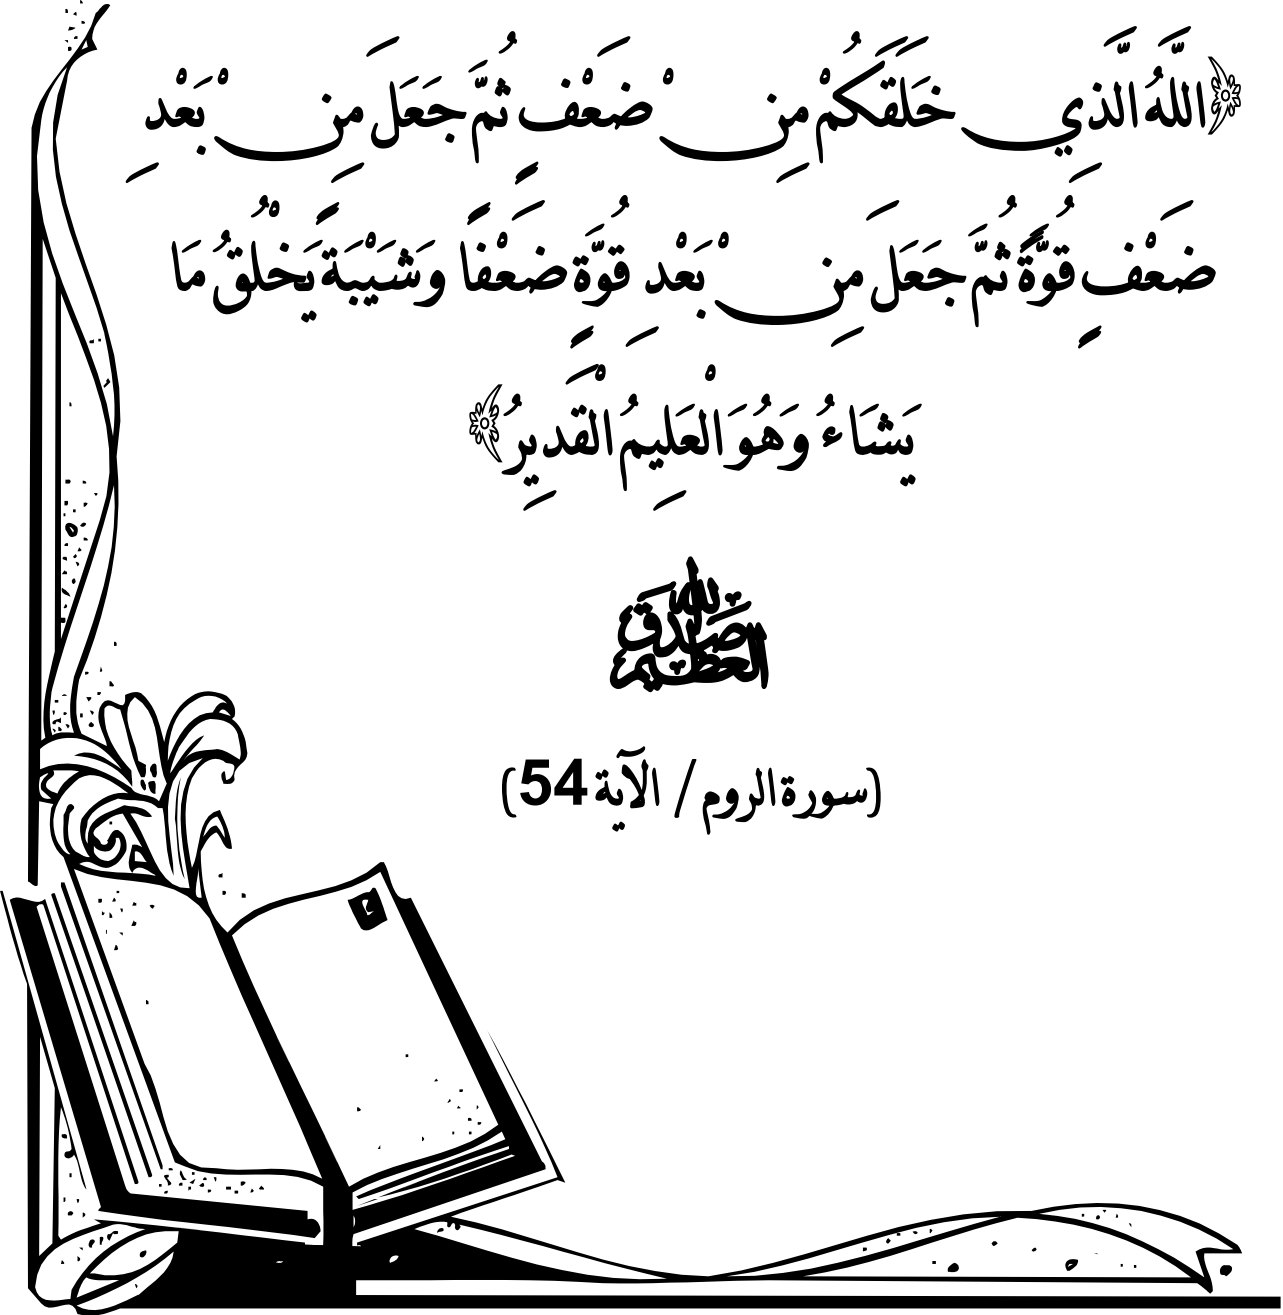 ﴿اللَّهُ الَّذِي خَلَقَكُمْ مِنْ ضَعْفٍ ثُمَّ جَعَلَ مِنْ بَعْدِ
ضَعْفٍ قُوَّةً ثُمَّ جَعَلَ مِنْ بَعْدِ قُوَّةٍ ضَعْفًا وَشَيْبَةً يَخْلُقُ مَا
يَشَاءُ وَهُوَ الْعَلِيمُ الْقَدِيرُ﴾
صدق الله العظيم
(سورة الروم / الآية 54)